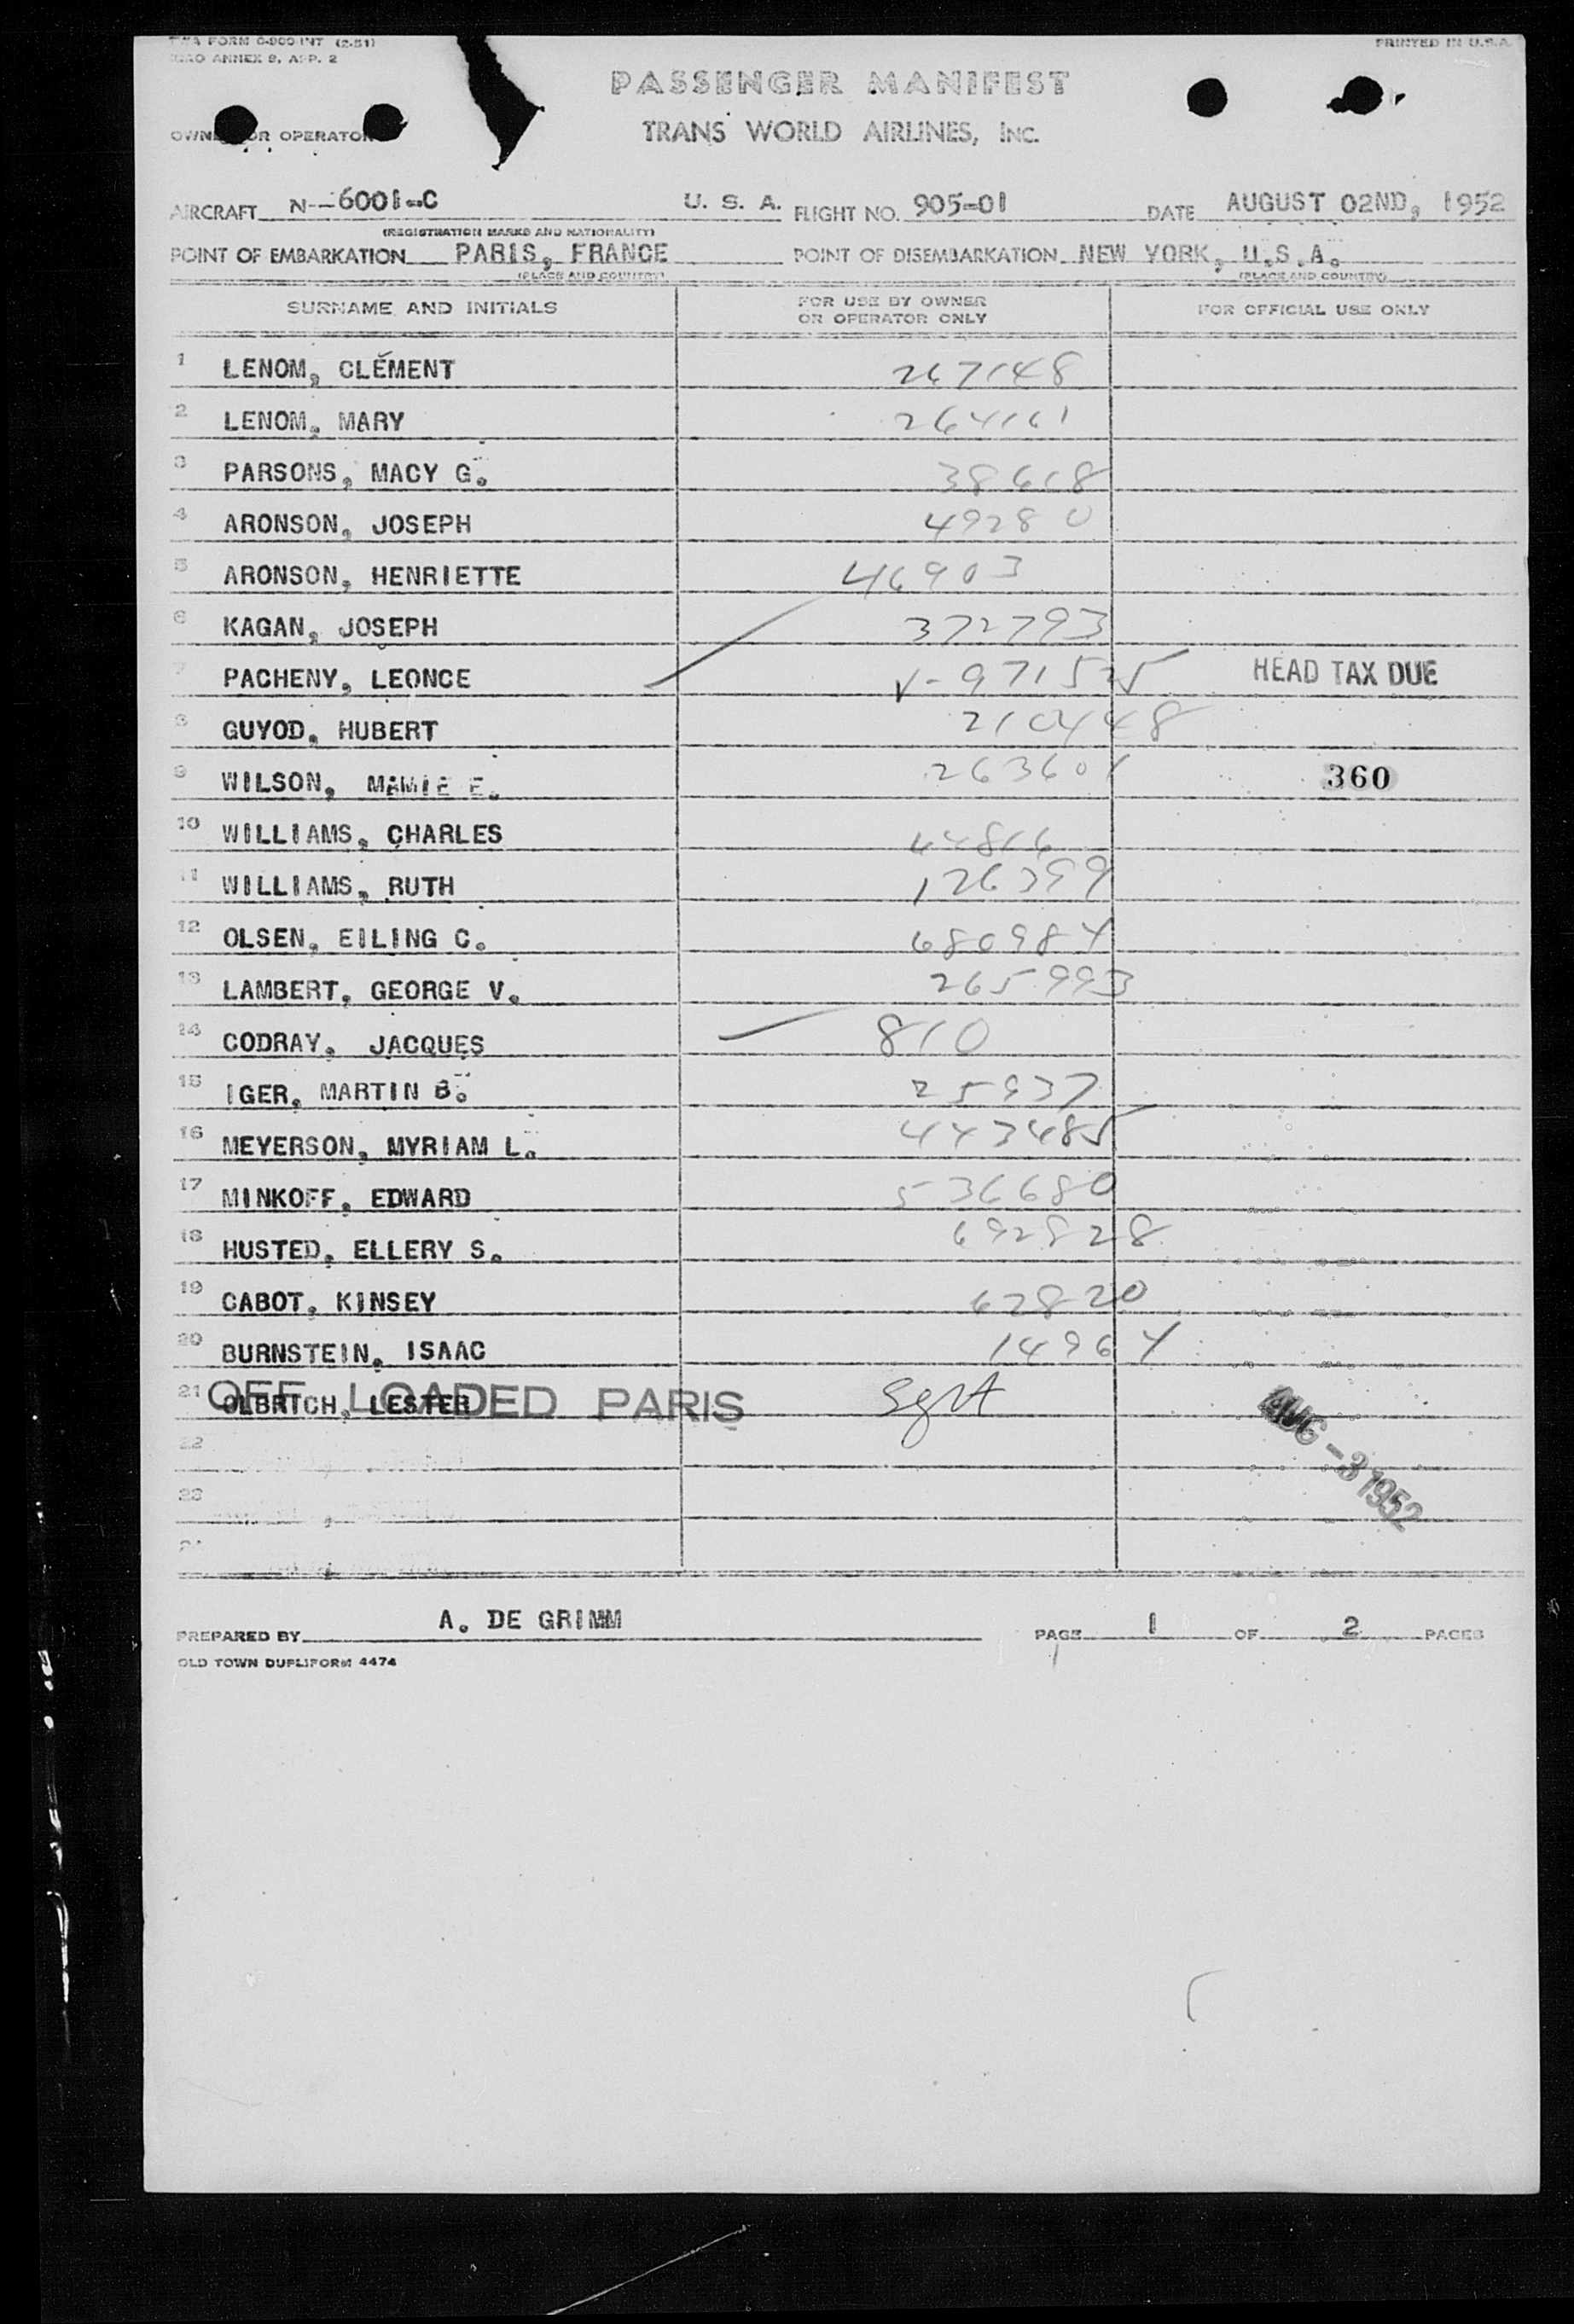 TWA FORM O-900-INT (2-51)
PRINTED IN U.S.A.
ICAO ANNEX 9, APP. 2
PASSENGER MANIFEST
OWNER OR OPERATOR
TRANS WORLD AIRLINES, INC.
AIRCRAFT N--6001-C U. S. A. FLIGHT NO. 905-01 DATE AUGUST 02ND, 1952
(REGISTRATION MARKS AND NATIONALITY)
POINT OF EMBARKATION PARIS, FRANCE POINT OF DISEMBARKATION NEW YORK, U.S.A.
(PLACE AND COUNTRY) (PLACE AND COUNTRY)
SURNAME AND INITIALS FOR USE BY OWNER OR OPERATOR ONLY FOR OFFICIAL USE ONLY
1 LENOM, CLÉMENT 267148
2 LENOM, MARY 264161
3 PARSONS, MACY G. 38618
4 ARONSON, JOSEPH 49280
5 ARONSON, HENRIETTE 46903
6 KAGAN, JOSEPH 372793
7 PACHENY, LEONCE V-971525 HEAD TAX DUE
8 GUYOD, HUBERT 210448
9 WILSON, MAMIE E. 263601 360
10 WILLIAMS, CHARLES 44816
11 WILLIAMS, RUTH 126399
12 OLSEN, EILING C. 680984
13 LAMBERT, GEORGE V. 265993
14 CODRAY, JACQUES 810
15 IGER, MARTIN B. 25937
16 MEYERSON, MYRIAM L. 443485
17 MINKOFF, EDWARD 536680
18 HUSTED, ELLERY S. 692828
19 CABOT, KINSEY 62820
20 BURNSTEIN, ISAAC 14964
21 OLBRICH, LESTER OFF LOADED PARIS Sgt
AUG -3 1952
22
23
24
PREPARED BY A. DE GRIMM PAGE 1 OF 2 PAGES
OLD TOWN DUPLIFORM 4474